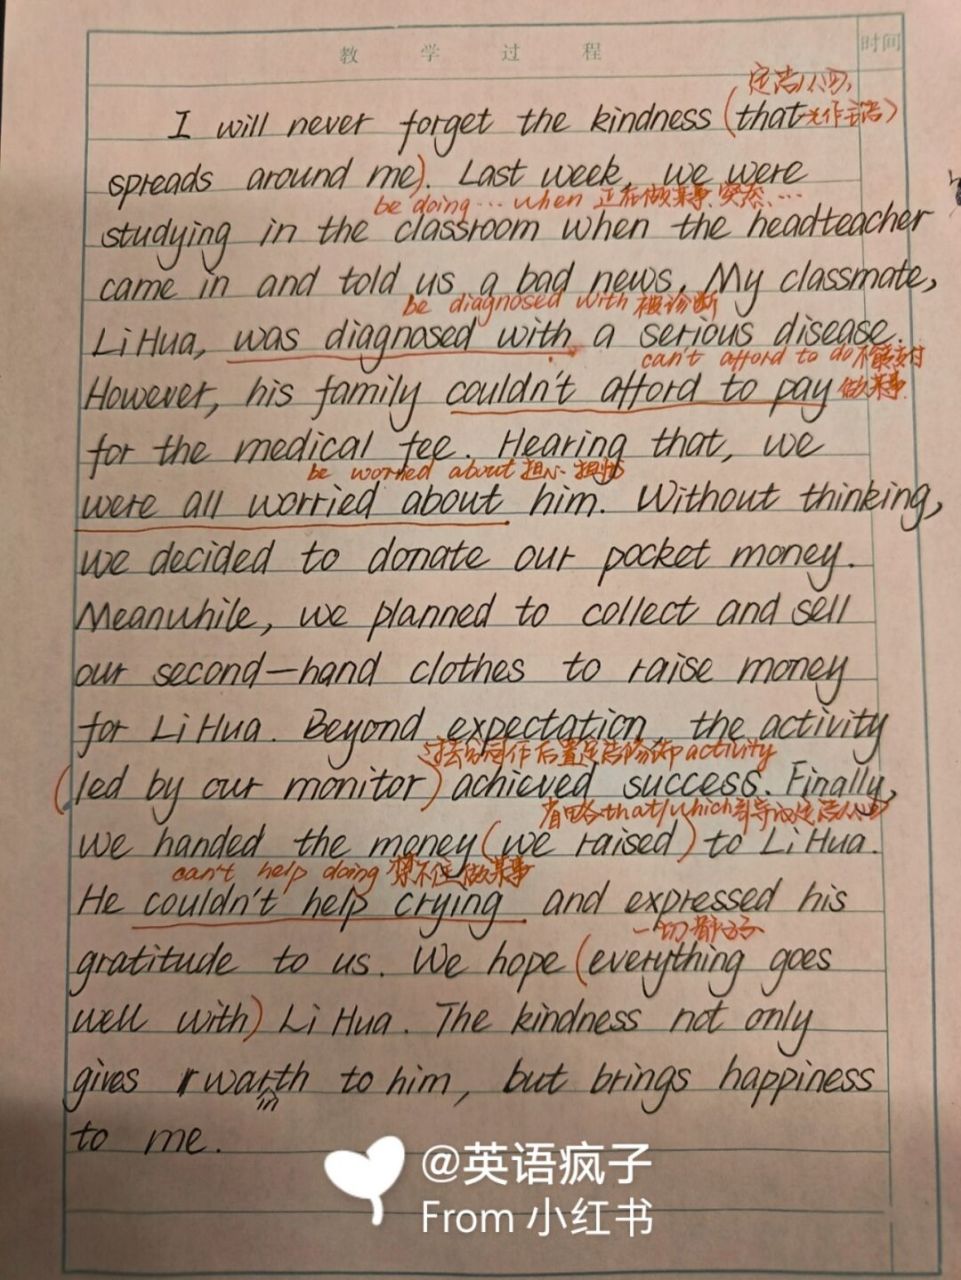 教 学 过 程 时间
定语从句,
I will never forget the kindness (that 关作主语)
spreads around me). Last week, we were
be doing … when 正在做某事,突然…
studying in the classroom when the headteacher
came in and told us a bad news. My classmate,
be diagnosed with 被诊断
Li Hua, was diagnosed with a serious disease.
can't afford to do 不能支付
However, his family couldn't afford to pay 做某事
for the medical fee. Hearing that, we
be worried about 担心
were all worried about him. Without thinking,
we decided to donate our pocket money.
Meanwhile, we planned to collect and sell
our second-hand clothes to raise money
for Li Hua. Beyond expectation, the activity
过去分词作后置定语修饰 activity
(led by our monitor) achieved success. Finally,
省略that/which引导的定语从句
we handed the money (we raised) to Li Hua.
can't help doing 禁不住做某事
He couldn't help crying and expressed his
一切都好
gratitude to us. We hope (everything goes
well with) Li Hua. The kindness not only
gives warmth to him, but brings happiness
to me.
@英语疯子
From 小红书